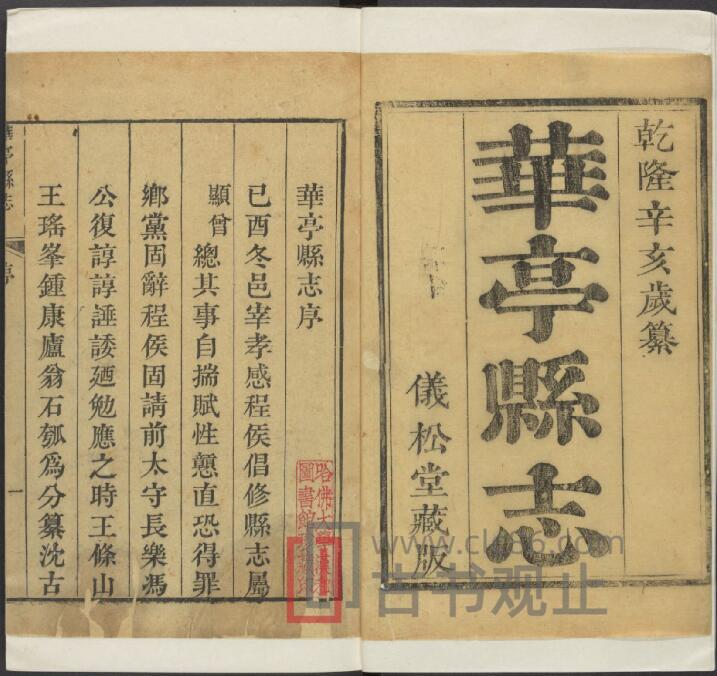 乾隆辛亥歲纂
華亭縣志
儀松堂藏版
華亭縣志序
己酉冬邑宰孝感程侯倡修縣志屬
顯曾總其事自揣賦性戇直恐得罪
鄉黨固辭程侯固請前太守長樂馮
公復諄諄諈諉廼勉應之時王條山
王瑤峯鍾康廬翁石瓠為分纂沈古
華亭縣志
序
一
哈佛大學漢和
圖書館珍藏印
www.cl686.com
古书观止